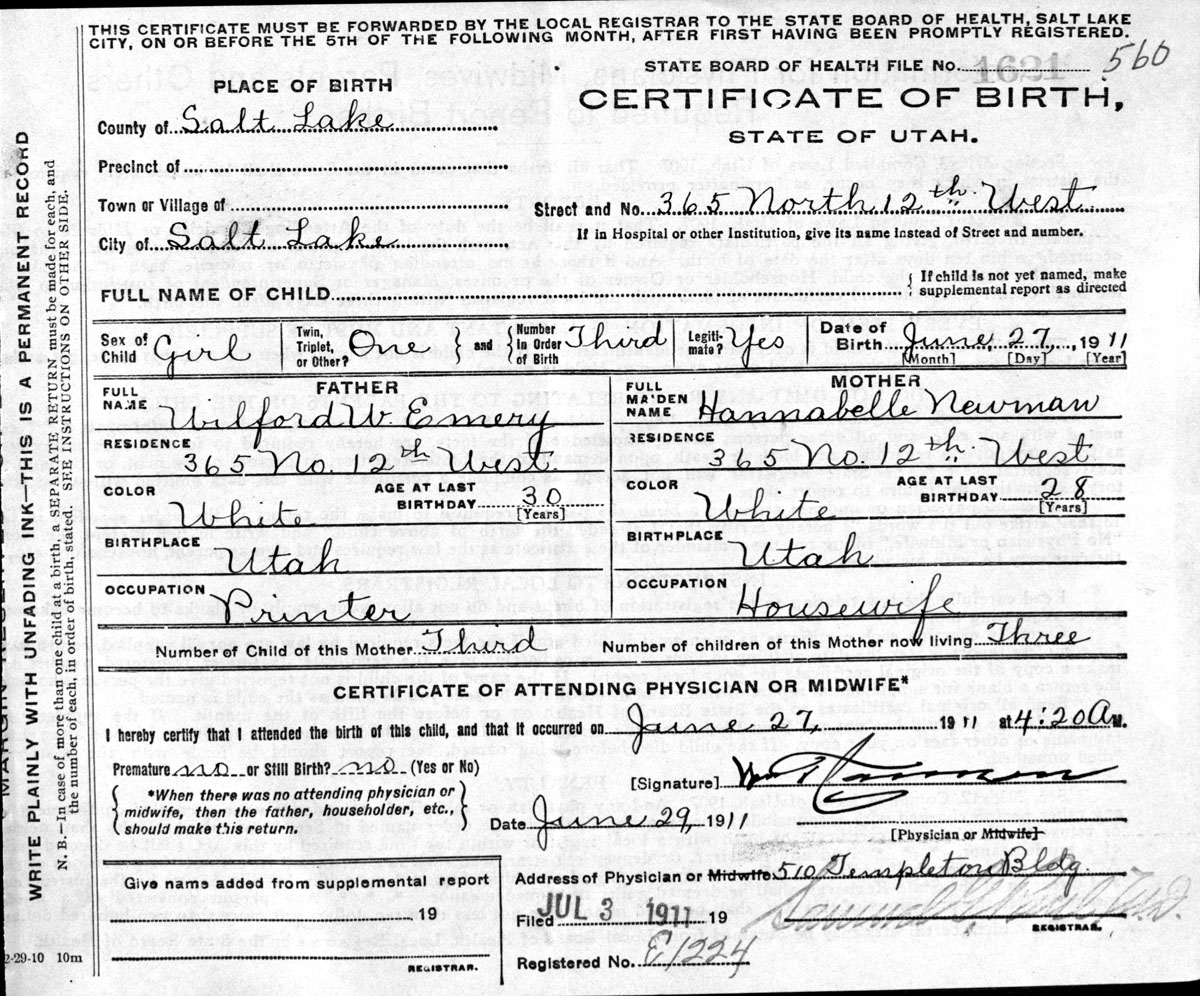 THIS CERTIFICATE MUST BE FORWARDED BY THE LOCAL REGISTRAR TO THE STATE BOARD OF HEALTH, SALT LAKE
CITY, ON OR BEFORE THE 5TH OF THE FOLLOWING MONTH, AFTER FIRST HAVING BEEN PROMPTLY REGISTERED.
560
STATE BOARD OF HEALTH FILE No. 1621
CERTIFICATE OF BIRTH,
STATE OF UTAH.
PLACE OF BIRTH
County of Salt Lake
Precinct of
Town or Village of
City of Salt Lake
Street and No. 365 North 12th West
If in Hospital or other Institution, give its name instead of Street and number.
FULL NAME OF CHILD
If child is not yet named, make
supplemental report as directed
Sex of Child Girl
Twin, Triplet, or Other? One
and
Number in Order of Birth Third
Legitimate? Yes
Date of Birth June 27, 1911
[Month] [Day] [Year]
FATHER
FULL NAME Wilford W. Emery
RESIDENCE
365 No. 12th West.
COLOR White
AGE AT LAST BIRTHDAY 30
[Years]
BIRTHPLACE
Utah
OCCUPATION
Printer
MOTHER
FULL MAIDEN NAME Hannabelle Newman
RESIDENCE
365 No. 12th West.
COLOR White
AGE AT LAST BIRTHDAY 28
[Years]
BIRTHPLACE
Utah
OCCUPATION
Housewife
Number of Child of this Mother Third
Number of children of this Mother now living Three
CERTIFICATE OF ATTENDING PHYSICIAN OR MIDWIFE*
I hereby certify that I attended the birth of this child, and that it occurred on June 27, 1911 at 4:20 A M.
Premature no or Still Birth? no (Yes or No)
*When there was no attending physician or
midwife, then the father, householder, etc.,
should make this return.
[Signature]
Date June 29, 1911
[Physician or Midwife]
Address of Physician or Midwife 510 Templeton Bldg.
Give name added from supplemental report
19
REGISTRAR.
Filed JUL 3 1911 19
REGISTRAR.
Registered No. E1224
2-29-10 10m
WRITE PLAINLY WITH UNFADING INK—THIS IS A PERMANENT RECORD
N. B.—In case of more than one child at a birth, a SEPARATE RETURN must be made for each, and
the number of each, in order of birth, stated. SEE INSTRUCTIONS ON OTHER SIDE.